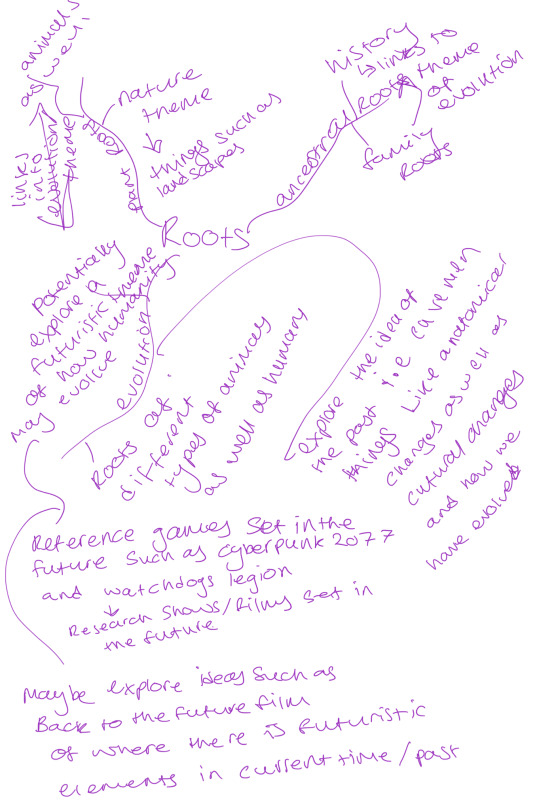 Roots
plant roots
nature
theme
things such as
landscapes
links
into
evolution
theme
animals
as well
ancestral Roots
history
links to
theme
of
evolution
family
roots
evolution
potentially
explore a
futuristic theme
of how humanity
may evolve
Roots of
different
types of animals
as well as humans
explore the idea of
the past i.e cavemen
things like anatomical
changes as well as
cultural changes
and how we
have evolved
Reference games set in the
future such as cyberpunk 2077
and watchdogs legion
Research shows/films set in
the future
Maybe explore ideas such as
Back to the future film
of where there is futuristic
elements in current time/past